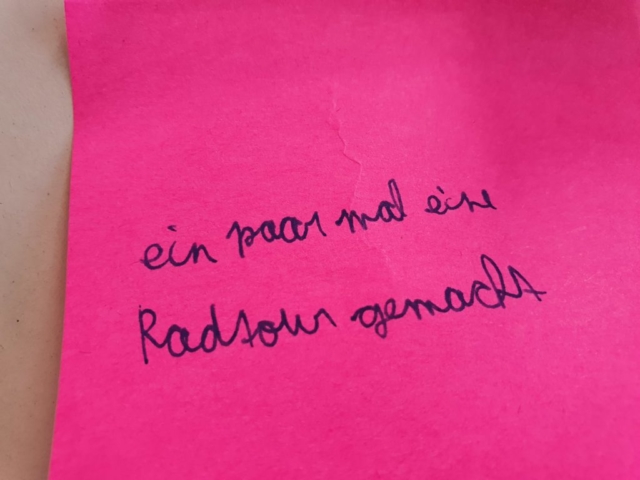 ein paar mal eine
Radtour gemacht